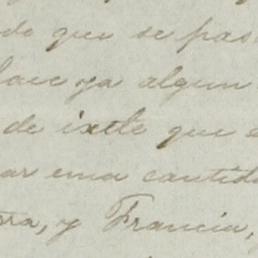 do que se pas
hace ya algun
de ixtle que
ar una cantid
rra, y Francia,